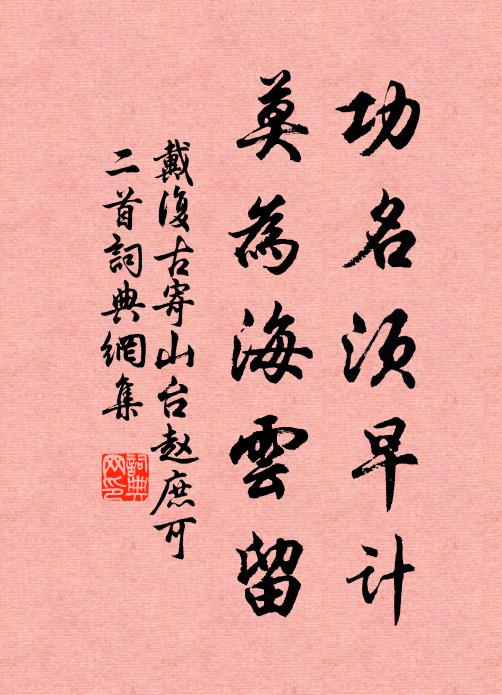 功名須早计
莫為海雲留
戴復古寄山台赵庶可
二首詞典網集
詞典网印